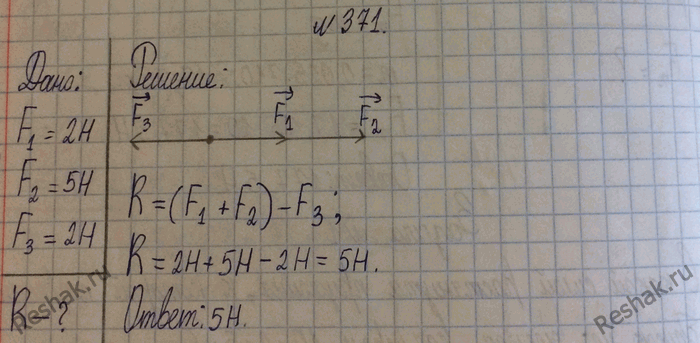 № 371.
Дано:
F₁ = 2Н
F₂ = 5Н
F₃ = 2Н
R – ?
Решение:
F₃ F₁ F₂
R = (F₁ + F₂) – F₃;
R = 2Н + 5Н – 2Н = 5Н.
Ответ: 5Н.
Reshak.ru
Reshak.ru